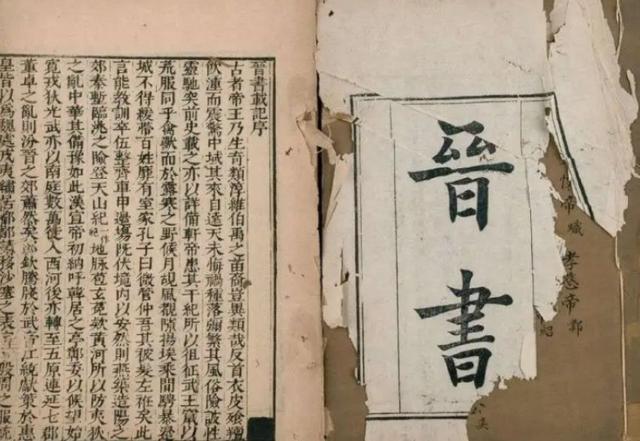 晉書載記序
古者帝王乃生奇類淳維伯禹之苗裔豈異類哉反首衣皮飡羶
飲湩而震驚中域其來自遠天未悔禍種落彌繁其風俗險詖性
靈馳突前史載之亦以詳備軒帝患其干紀所以徂征武王竄以
荒服同乎禽獸而於露寒之野候月覘風覩隙揚埃乘間騁暴邊
城不得緩帶百姓靡有室家孔子曰微管仲吾其被髮左衽矣此
言能教訓卒伍整齊車甲邊場既伏境內以安然則燕築造陽之
郊秦塹臨洮之險登天山紀一作絕地脉苞玄菟款黃河所以防夷狄
之亂中華其備豫如此漢宣帝初納呼韓居之亭鄣委以候望始
寬戎狄光武亦以南庭數萬徙入西河後亦轉至五原連延七郡
董卓之亂則汾晉之郊蕭然矣郭欽騰牋於武帝江統獻策於惠
皇皆以爲魏處戎夷繡居都鄙請移沙塞之表定一殷周之服統
晉書
帝 孝愍帝